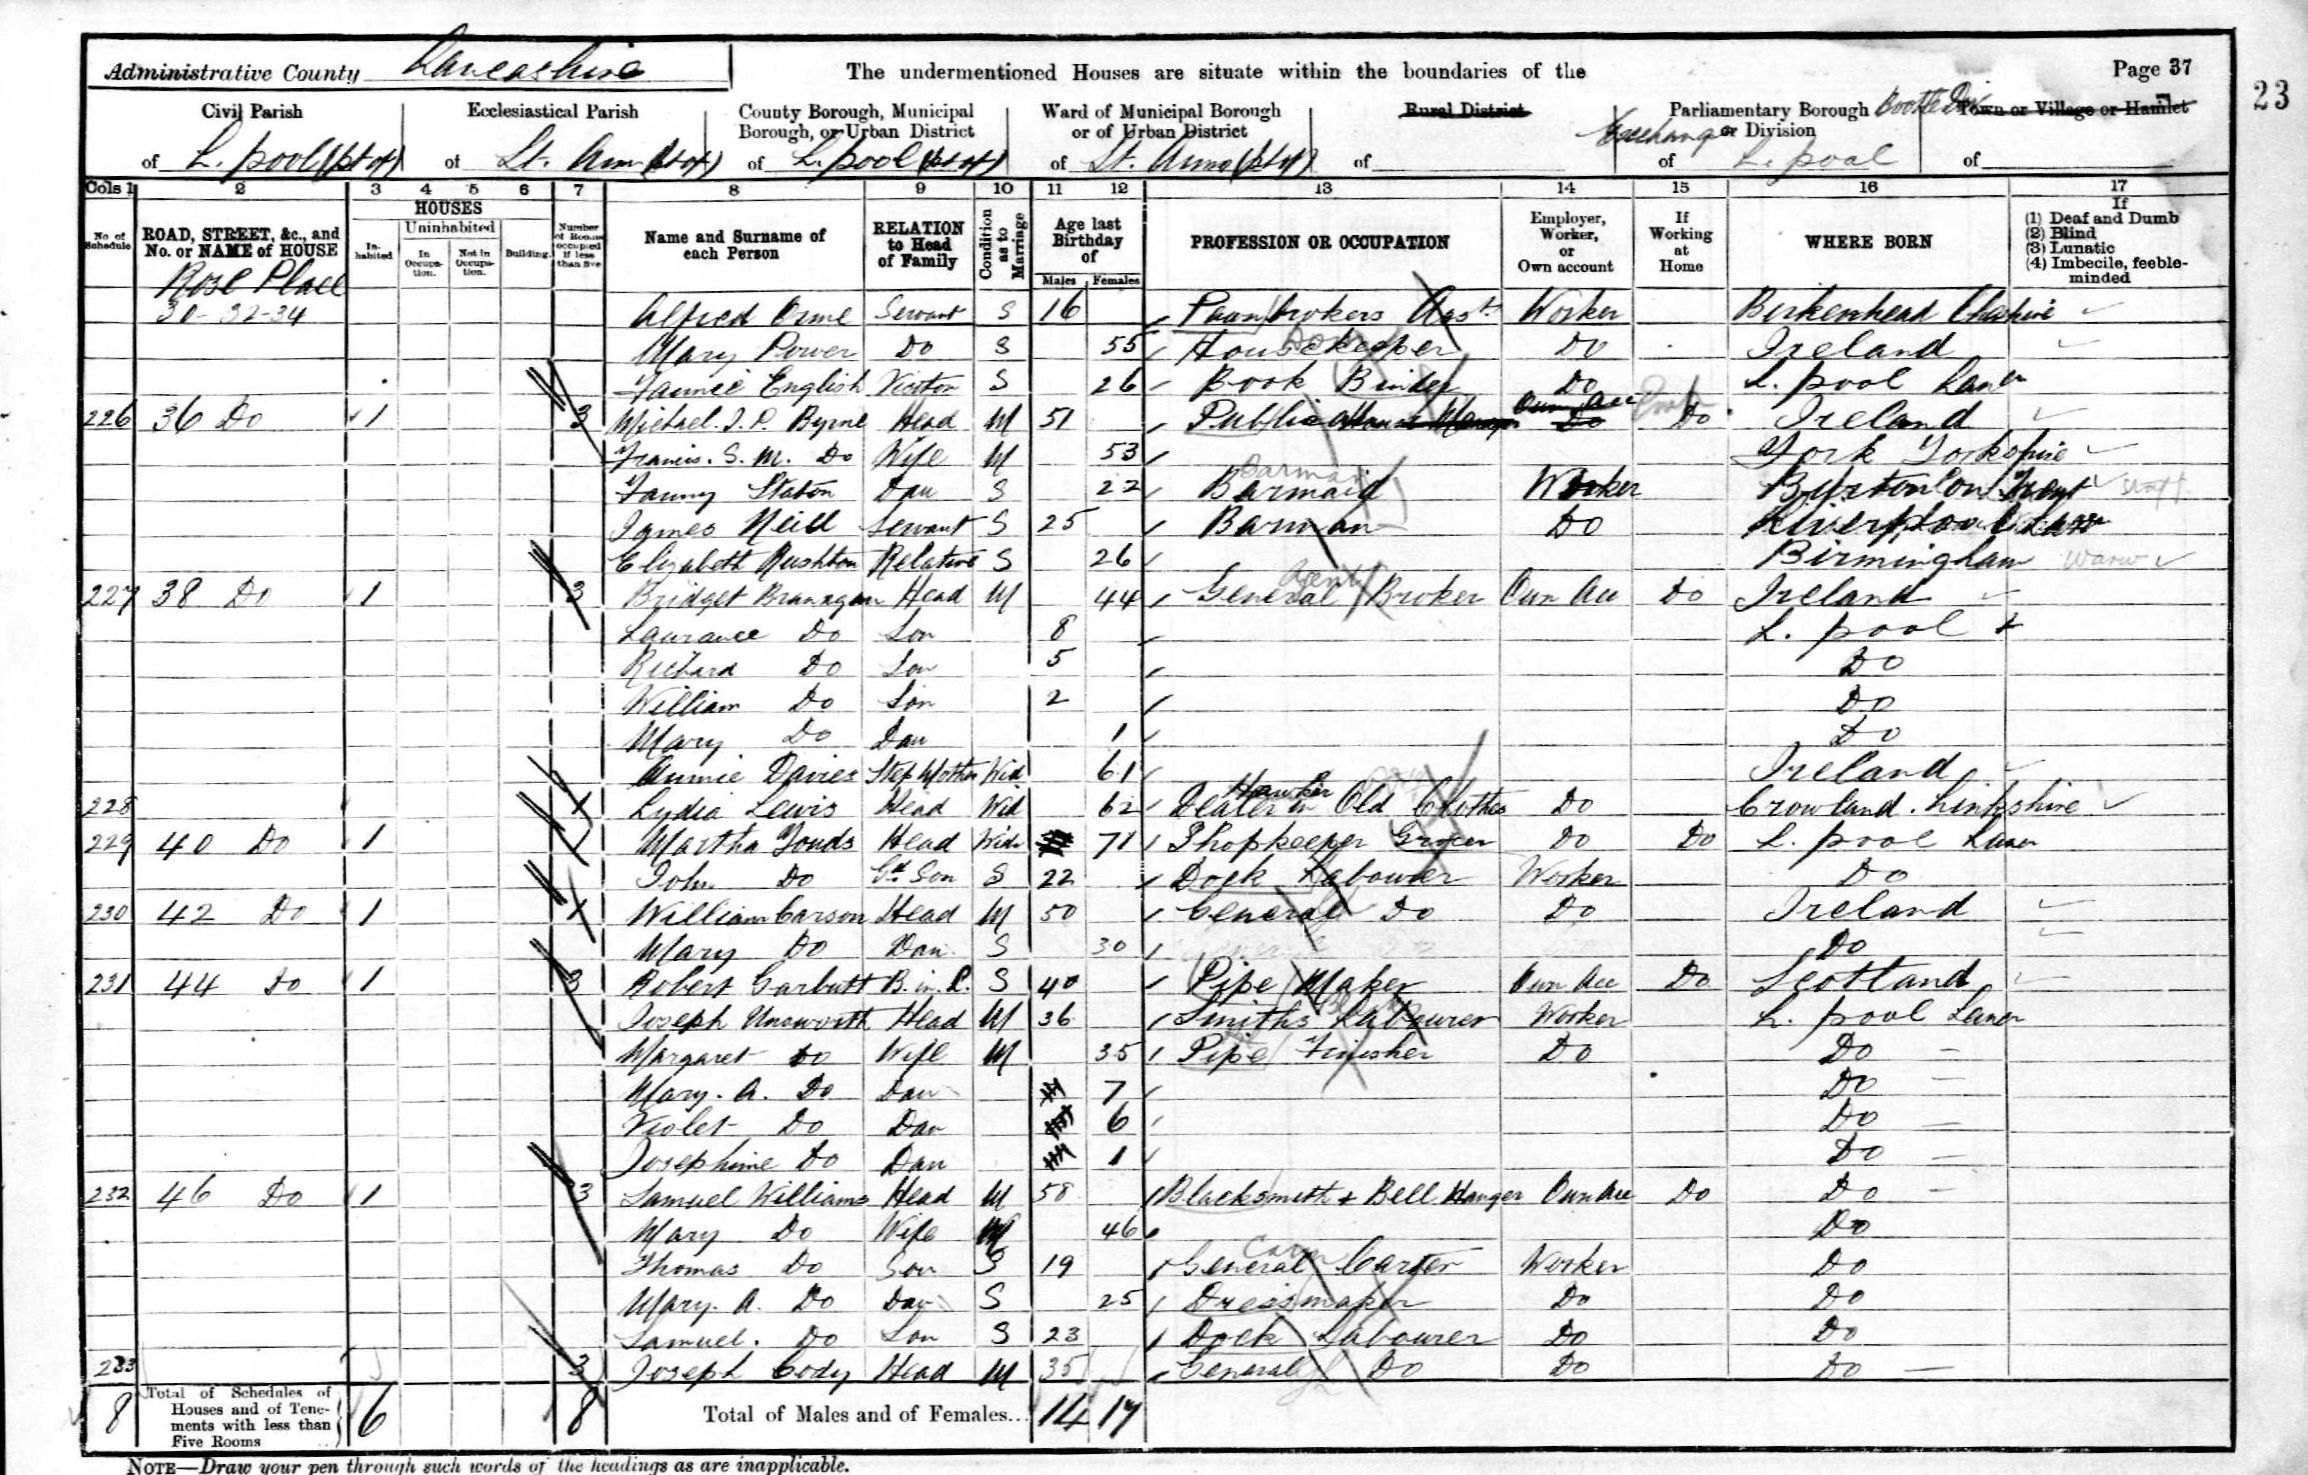 Administrative County Lancashire The undermentioned Houses are situate within the boundaries of the Page 37
23
Civil Parish Ecclesiastical Parish County Borough, Municipal Borough, or Urban District Ward of Municipal Borough or of Urban District Rural District Parliamentary Borough or Division Town or Village or Hamlet
of L.pool (pt of) of St. Ann (pt of) of L.pool (pt of) of St. Anns (pt of) of Exchange of L.pool of
Cols 1 2 3 4 5 6 7 8 9 10 11 12 13 14 15 16 17
No of Schedule ROAD, STREET, &c., and No. or NAME of HOUSE HOUSES Inhabited Uninhabited In Occupation. Not in Occupation. Building. Number of Rooms occupied if less than five Name and Surname of each Person RELATION to Head of Family Condition as to Marriage Age last Birthday of Males Females PROFESSION OR OCCUPATION Employer, Worker, or Own account If Working at Home WHERE BORN If (1) Deaf and Dumb (2) Blind (3) Lunatic (4) Imbecile, feeble-minded
Rose Place
30-32-34 Alfred Orme Servant S 16 Pawnbrokers Asst Worker Birkenhead Cheshire
Mary Power Do S 55 Housekeeper Do Ireland
Fannie English Visitor S 26 Book Binder Do L.pool Lanc
226 36 Do 1 3 Michael. J. P. Byrne Head M 51 Public House Manager Own Acc Do Do Ireland
Francis. S. M. Do Wife M 53 York Yorkshire
Fanny Staton Dau S 22 Barmaid Worker Burton on Trent
James Neill Servant S 25 Barman Do Liverpool Lanc
Elizabeth Rushton Relative S 26 Birmingham Warw
227 38 Do 1 3 Bridget Branagan Head M 44 General Broker Own Acc Do Ireland
Laurance Do Son 8 L. pool
Richard Do Son 5 Do
William Do Son 2 Do
Mary Do Dau 1 Do
Annie Davies Step Mother Wid 61 Ireland
228 1 Lydia Lewis Head Wid 62 Dealer in Old Clothes Hawker Do Crowland. Linkshire
229 40 Do 1 1 Martha Youds Head Wid 71 Shopkeeper Grocer Do Do L. pool Lanc
John Do Gd. Son S 22 Dock Labourer Worker Do
230 42 Do 1 1 William Carson Head M 50 General Do Do Ireland
Mary Do Dau S 30 Do
231 44 Do 1 3 Robert Garbutt B. in. L. S 40 Pipe Maker Own Acc Do Scotland
Joseph Unsworth Head M 36 Smiths Labourer Worker L. pool Lanc
Margaret Do Wife M 35 Pipe Finisher Do Do
Mary. A. Do Dau 7 Do
Violet Do Dau 6 Do
Josephine Do Dau 1 Do
232 46 Do 1 3 Samuel Williams Head M 58 Blacksmith + Bell Hanger Own Acc Do Do
Mary Do Wife M 46 Do
Thomas Do Son S 19 General Carter Worker Do
Mary. A. Do Dau S 25 Dressmaker Do Do
Samuel. Do Son S 23 Dock Labourer Do Do
233 3 Joseph Cody Head M 35 General Do Do Do
8 Total of Schedules of Houses and of Tenements with less than Five Rooms 6 8 Total of Males and of Females... 14 17
NOTE—Draw your pen through such words of the headings as are inapplicable.